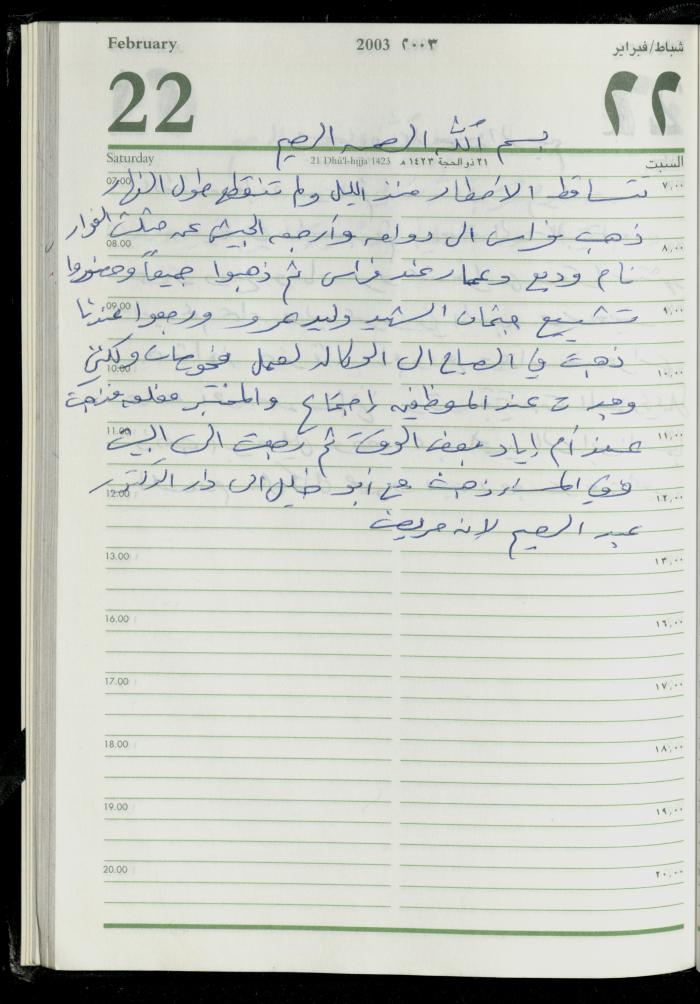 February 2003 ٢٠٠٣ شباط/فبراير
22 ٢٢
بسم الله الرحمن الرحيم
Saturday 21 Dhu'l-hijja 1423 ٢١ ذو الحجة ١٤٢٣ هـ السبت
07.00 تتساقط الامطار منذ الليل ولم تنقطع طول النهار ٧,٠٠
ذهب فراس الى دولعه وأرجعه الجيش عن مثلث الفوار
08.00 ٨,٠٠
نام وديع وعمار عند فراس ثم ذهبوا جميعاً وحضروا
09.00 تشييع جثمان الشهيد وليد عمرو ورجعوا عندنا ٩,٠٠
ذهبت في الصباح الى الوكاله لعمل فحوصات ولكني
10.00 ١٠,٠٠
وجدت عند الموظفين اجتماع والمختبر مغلق فنزلت
11.00 عند أم إياد بعض الوقت ثم رجعت الى البيت ١١,٠٠
وفي المساء ذهبت مع أبو خليل الى دار الدكتور
12.00 ١٢,٠٠
عبد الرحيم لانه مريض
13.00 ١٣,٠٠
16.00 ١٦,٠٠
17.00 ١٧,٠٠
18.00 ١٨,٠٠
19.00 ١٩,٠٠
20.00 ٢٠,٠٠